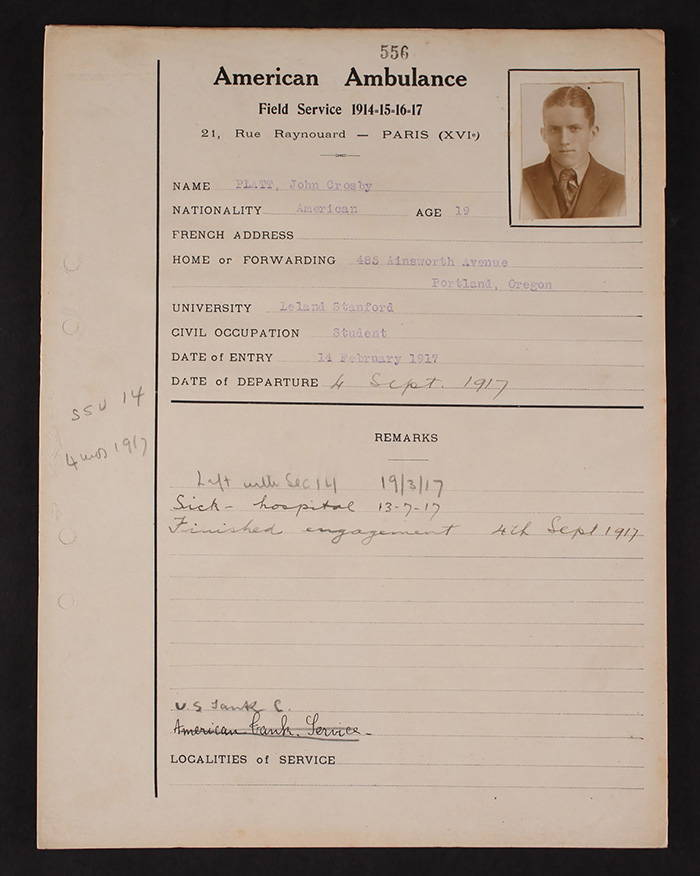 556
American Ambulance
Field Service 1914-15-16-17
21, Rue Raynouard — PARIS (XVIe)
NAME PLATT, John Crosby
NATIONALITY American AGE 19
FRENCH ADDRESS
HOME or FORWARDING 485 Ainsworth Avenue
Portland, Oregon
UNIVERSITY Leland Stanford
CIVIL OCCUPATION Student
DATE of ENTRY 14 February 1917
DATE of DEPARTURE 4 Sept. 1917
SSU 14
4 mos 1917
REMARKS
Left with Sec 14 19/3/17
Sick - hospital 13-7-17
Finished engagement 4th Sept 1917
U.S Tank C.
American Tank. Service -
LOCALITIES of SERVICE